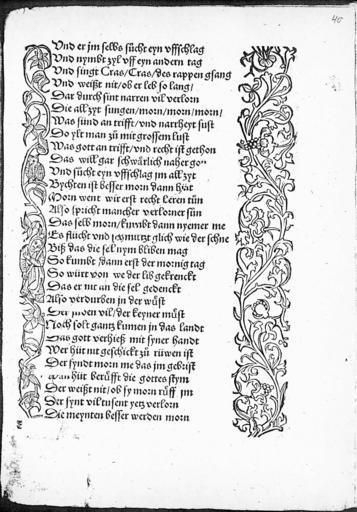 40
Vnd er jm selbs sůcht eyn vffschlag
Vnd nymbt zyl vff eyn andern tag
Vnd singt Cras/Cras/des rappen gsang
Vnd weißt nit/ob er leb so lang/
Dar durch sint narren vil verlorn
Die all zyt singen/morn/morn/morn/
Was sünd an trifft/vnd narrheyt sust
Do ylt man zů mit grossem lust
Was gott an trifft/vnd recht ist gethon
Das will gar schwärlich naher gon
Vnd sůcht eyn vffschlag jm all zyt
Bychten ist besser morn dann hüt
Morn went wir erst recht leren tůn
Also spricht mancher verlorner sůn
Das selb morn/kumbt dann nyemer me
Es flücht vnd glich wie der schne
Biß das die sel nym bliben mag
So kumbt dann erst der mornig tag
So würt von we der lib gekrenckt
Das er nit an die sel gedenckt
Also verdurben jn der wüst
Der juden vil/der keyner můst
Noch solt gantz kumen jn das landt
Das gott verhieß mit syner handt
Wer hüt nit geschickt zů rüwen ist
Der fyndt morn me das jm gebrist
hüt berüfft die gottes stym
Der weißt nit/ob sy morn rüff jm
Der synt vil tusent yetz verlorn
Die meynten besser werden morn